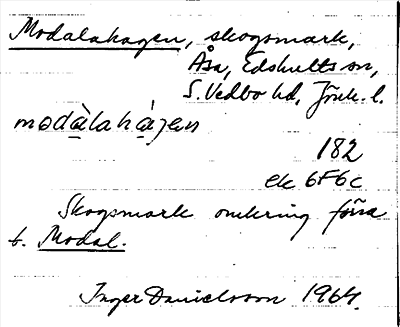 Modalahagen, skogsmark,
Åsa, Edshults sn,
S. Vedbo hd, Jönk. l.
modàlahàgen
182
ek 6F6c
Skogsmark omkring förra
t. Modal.
Inger Danielsson 1964.